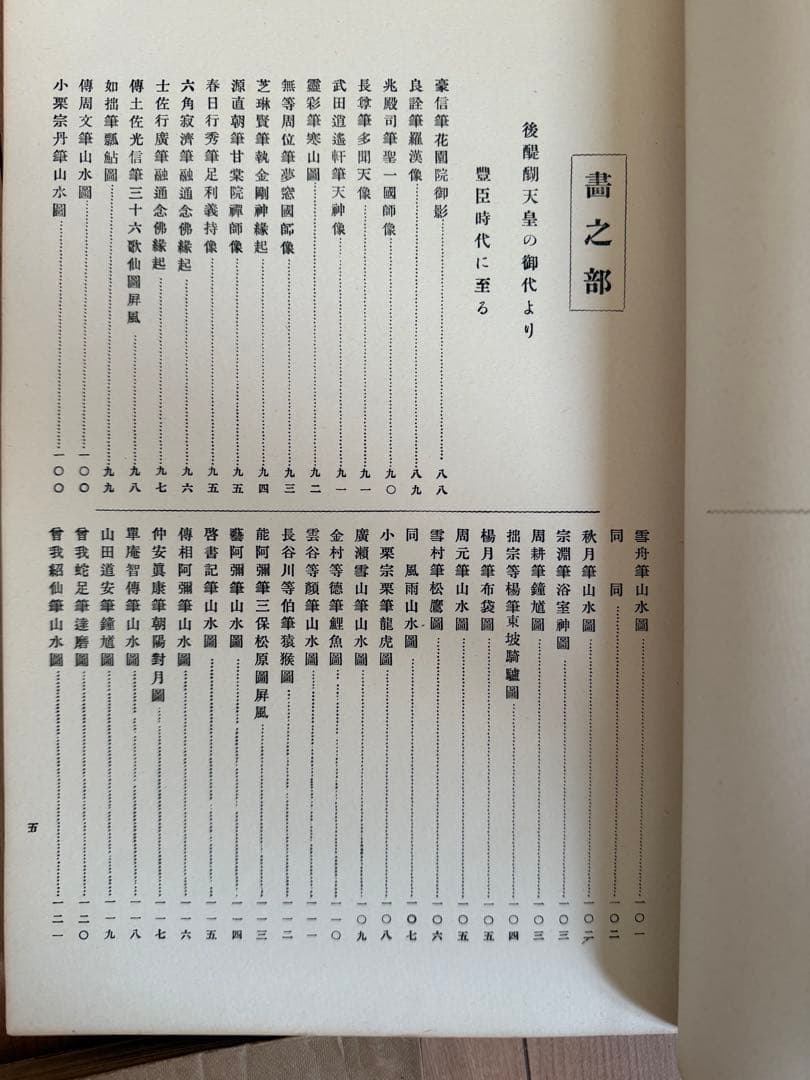 畵之部
後醍醐天皇の御代より
豐臣時代に至る
豪信筆花園院御影……八八
良詮筆羅漢像……八九
兆殿司筆聖一國師像……九〇
長尊筆多聞天像……九一
武田逍遙軒筆天神像……九一
靈彩筆寒山圖……九二
無等周位筆夢窓國師像……九三
芝琳賢筆執金剛神緣起……九四
源直朝筆甘棠院禪師像……九五
春日行秀筆足利義持像……九五
六角寂濟筆融通念佛緣起……九六
土佐行廣筆融通念佛緣起……九七
傳土佐光信筆三十六歌仙圖屏風……九八
如拙筆瓢鮎圖……九九
傳周文筆山水圖……一〇〇
小栗宗丹筆山水圖……一〇〇
雪舟筆山水圖……一〇一
同 同……一〇二
秋月筆山水圖……一〇二
宗淵筆浴室神圖……一〇三
周耕筆鐘馗圖……一〇三
拙宗等楊筆東坡騎驢圖……一〇四
楊月筆布袋圖……一〇五
周元筆山水圖……一〇五
雪村筆松鷹圖……一〇六
同 風雨山水圖……一〇七
小栗宗栗筆龍虎圖……一〇八
廣瀨雪山筆山水圖……一〇九
金村等德筆鯉魚圖……一一〇
雲谷等顏筆山水圖……一一一
長谷川等伯筆猿猴圖……一一二
能阿彌筆三保松原圖屏風……一一三
藝阿彌筆山水圖……一一四
啓書記筆山水圖……一一五
傳相阿彌筆山水圖……一一六
仲安眞康筆朝陽對月圖……一一七
單庵智傳筆山水圖……一一八
山田道安筆鐘馗圖……一一九
曾我蛇足筆達磨圖……一二〇
曾我紹仙筆山水圖……一二一
五